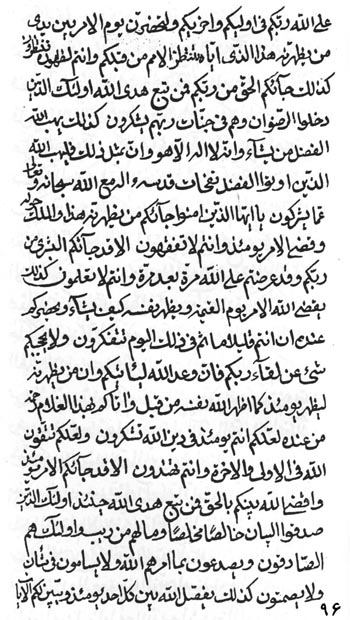 على الله ربكم في اوليكم واخريكم ولتحضرن يوم الامر بين يدى
من يظهرنه هذا الذى اياه لتنتظر الامم من قبلكم وانتم لظهوره تنتظرون
كذلك جائكم الحق من ربكم فمن تبع هدى الله اولئك الذين
دخلوا الرضوان وهم في جنات ربهم يشكرون كذلك يهب الله
الفضل من يشاء وانه لا اله الا هو وان مثل ذلك فليهب الله
الذين اوتوا الفضل نفحات قدسه والرمع الله سبحانه وتعالى
عما يشركون يا ايها الذين امنوا جائكم من يظهر هذا والملك حوله
وقضى الامر يومئذ وانتم لا تفقهون الا قد جائكم البشرى من
ربكم وقد عرضتم على الله مرة بعد مرة وانتم لا تعلمون كذلك
يقضى الله الامر يوم القيمة ويظهر نفسه كيف يشاء ويحضركم
عنده ان انتم قليلا ما تم في ذلك اليوم تتفكرون ولا يحجبكم
شئ عن لقاء ربكم فان وعد الله ليأتينكم وان من يظهرنه
ليظهر يومئذ كما اظهر الله نفسه من قبل واتاكم بهذا الغلام رحمة
من عنده لعلكم انتم يومئذ في دين الله تشكرون ولعلكم تتقون
الله في الاولى والاخرة وانتم تهتدون الا قد جائكم الامر يومئذ
واقضى الله بينكم بالحق فمن تبع هدى الله حينئذ اولئك الذين
صدقوا البيان خالصا مخلصا وما لهم من ريب واولئك هم
الصادقون ويصدعون بما امرهم الله ولا يسأمون في شأن
ولا يصمتون كذلك يفصل الله بين كل احد يومئذ ويبين لكم الايات
٩٦